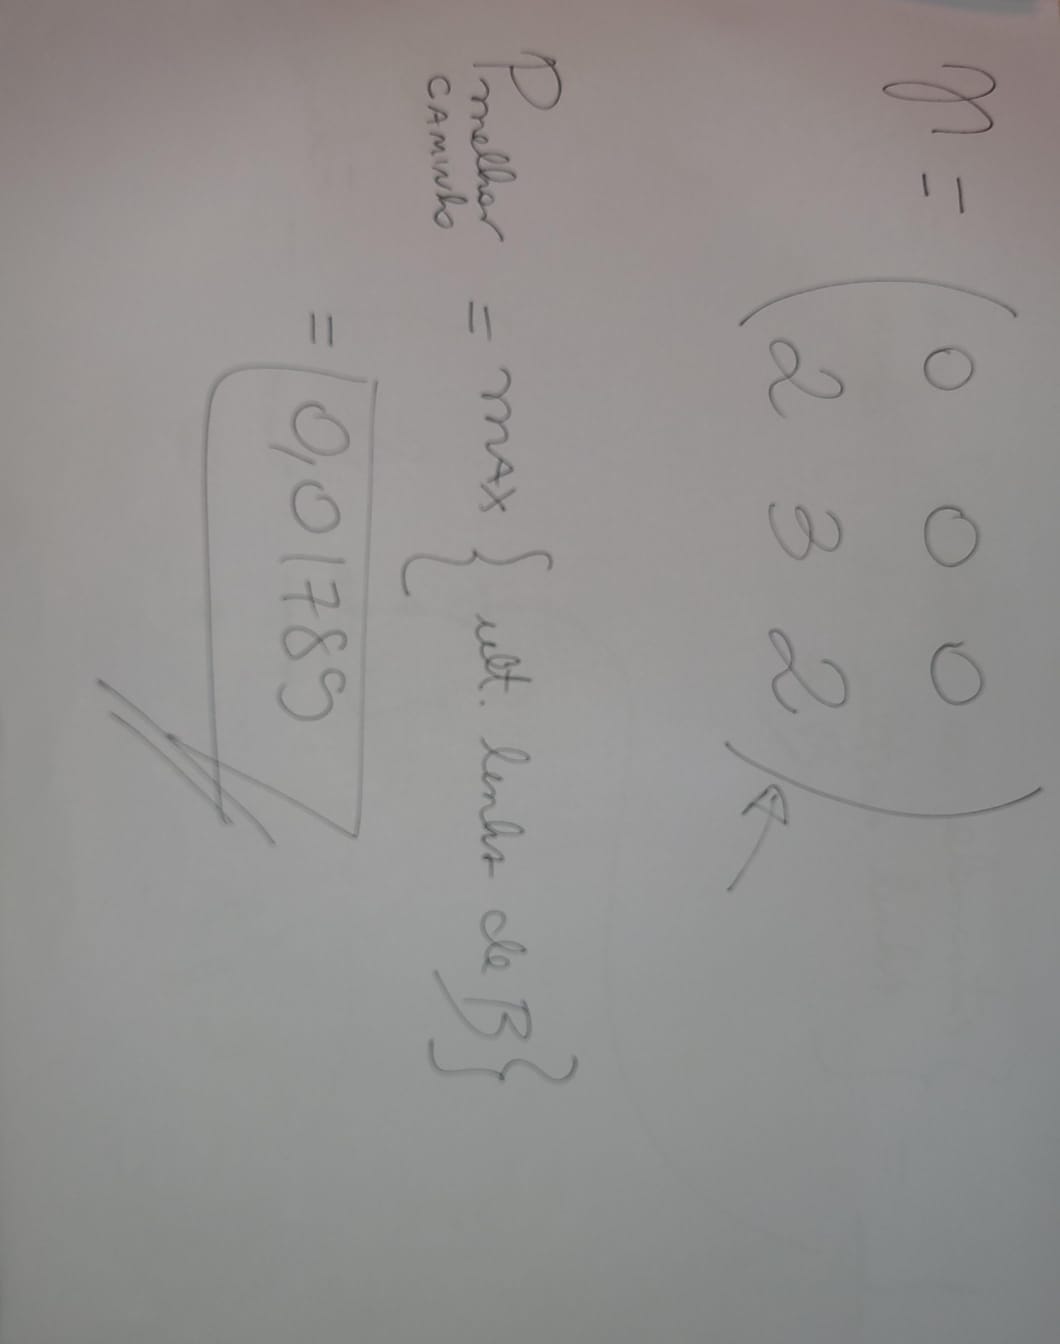 M = ( 0 0 0
2 3 2 )
P melhor caminho = max { ult. linha de B }
= 0,01789